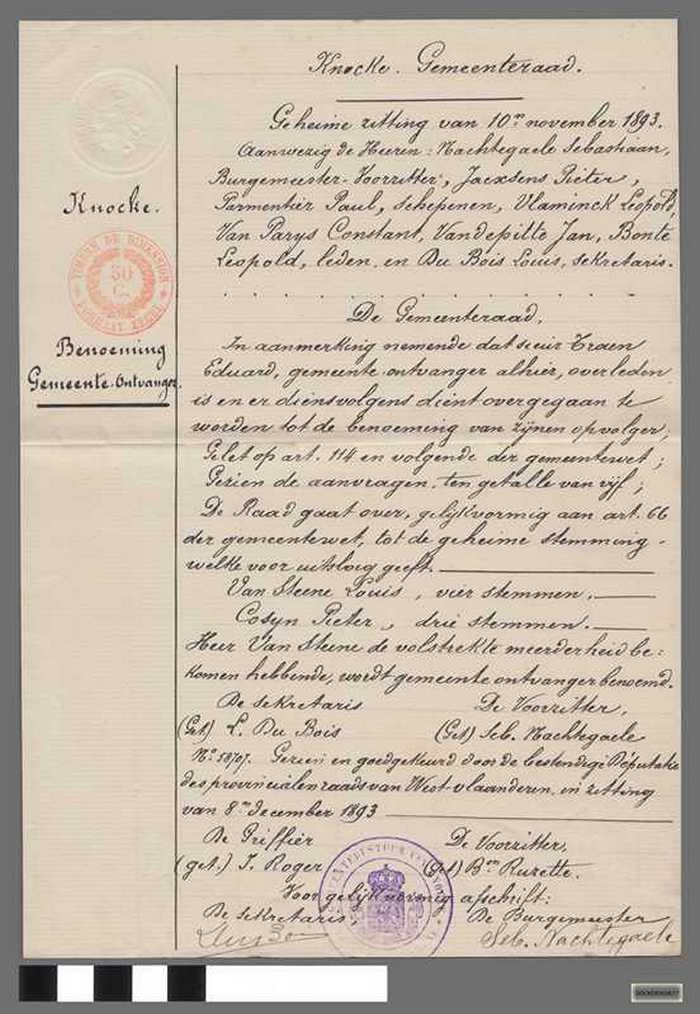 Knocke. Gemeenteraad.
Geheime zitting van 10en november 1893.
Aanwezig de Heeren: Nachtegaele Sebastiaan,
Burgemeester-Voorzitter, Jacxsens Pieter,
Parmentier Paul, schepenen, Vlaminck Leopold,
Van Parys Constant, Vandepitte Jan, Bonte
Leopold, leden en Du Bois Louis, sekretaris.
Knocke.
TIMBRE DE DIMENSION
50
C.
Benoeming
Gemeente-Ontvanger.
De Gemeenteraad,
In aanmerking nemende dat sieur Traen
Eduard, gemeente-ontvanger alhier, overleden
is en er diensvolgens dient overgegaan te
worden tot de benoeming van zijnen opvolger;
Gelet op art. 114 en volgende der gemeentewet;
Gezien de aanvragen, ten getalle van vijf;
De Raad gaat over, gelijkvormig aan art. 66
der gemeentewet, tot de geheime stemming -
welke voor uitslag geeft.
Van Steene Louis, vier stemmen.
Cosyn Pieter, drie stemmen.
Heer Van Steene de volstrekte meerderheid be:
komen hebbende, wordt gemeente ontvanger benoemd.
De sekretaris De Voorzitter,
(Get) L. Du Bois (Get) Seb. Nachtegaele
No 58707. Gezien en goedgekeurd door de bestendige Deputatie
des provincialen raads van West-vlaanderen in zitting
van 8en december 1893
De Griffier De Voorzitter,
(get.) J. Roger (Get) Bon Ruzette.
Voor gelijkvormig afschrift:
De sekretaris, De Burgemeester
Seb. Nachtegaele